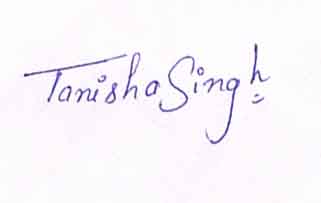 Tanisha Singh